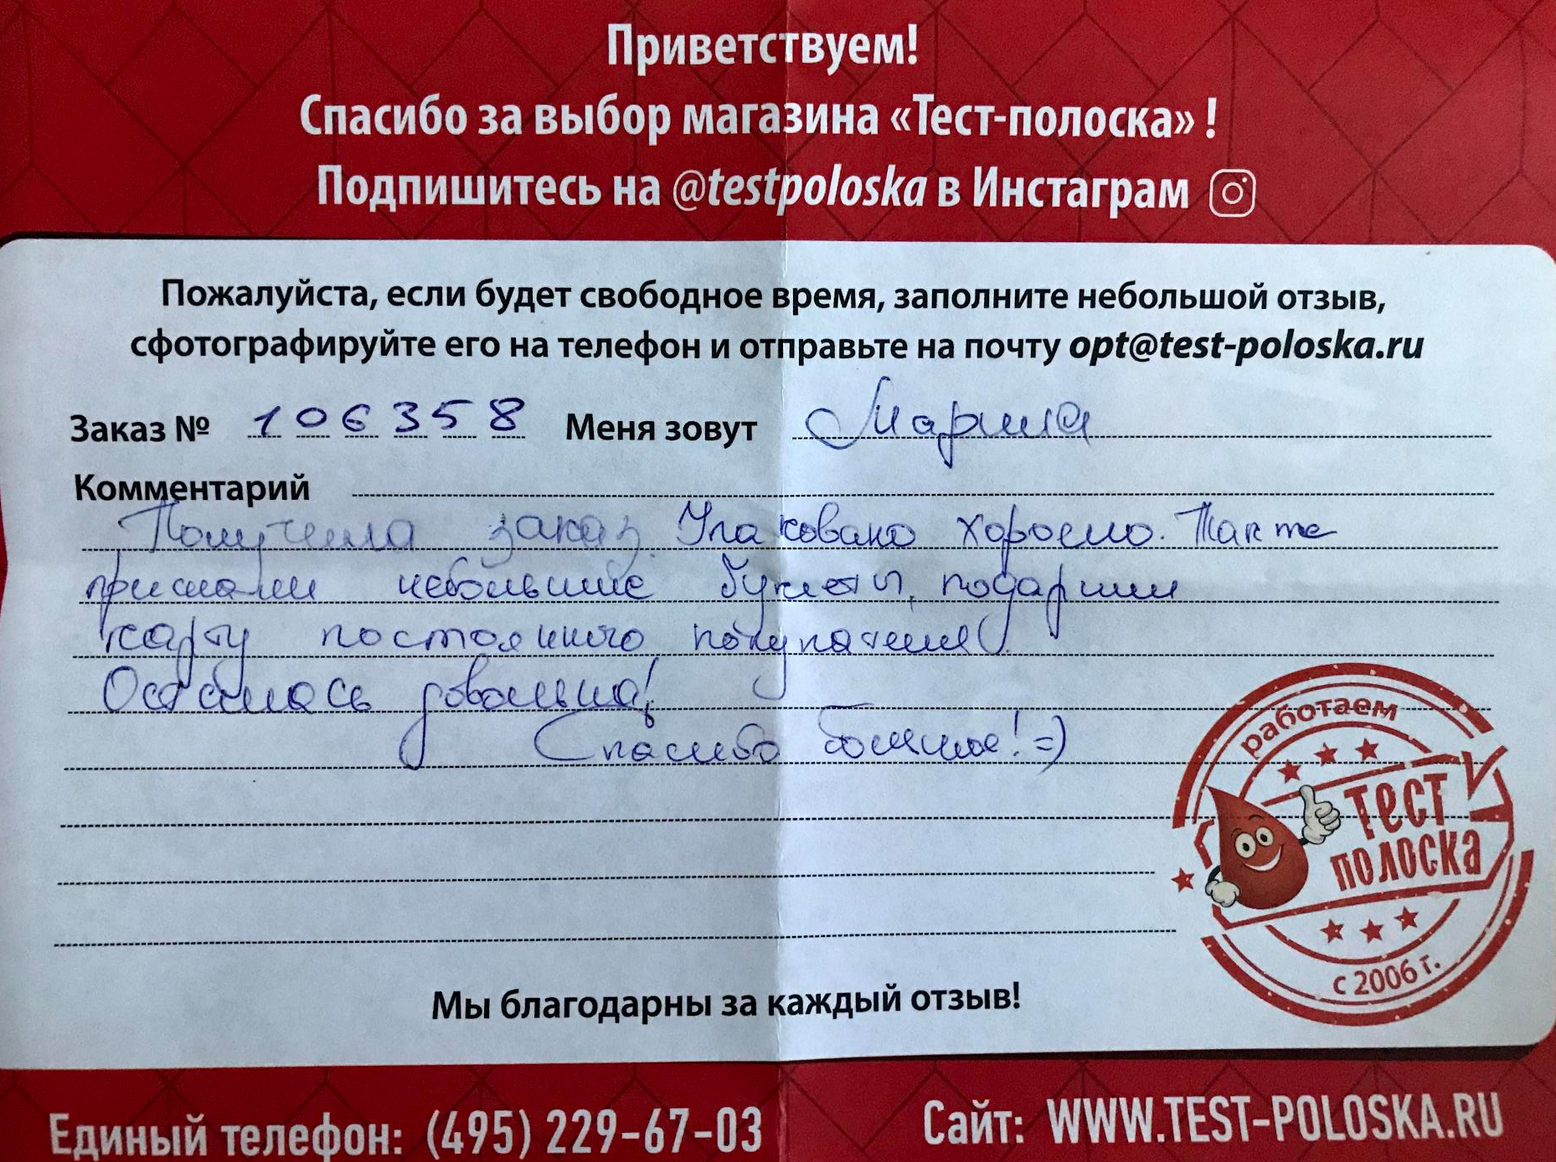 Приветствуем!
Спасибо за выбор магазина «Тест-полоска» !
Подпишитесь на @testpoloska в Инстаграм
Пожалуйста, если будет свободное время, заполните небольшой отзыв,
сфотографируйте его на телефон и отправьте на почту opt@test-poloska.ru
Заказ № 106358 Меня зовут Марина
Комментарий
Получила заказ. Упаковано хорошо. Так же
прислали небольшие букеты, подарили
карту постоянного покупателя.
Осталась довольна!
Спасибо большое! =)
работаем
Тест
полоска
с 2006 г.
Мы благодарны за каждый отзыв!
Единый телефон: (495) 229-67-03 Сайт: WWW.TEST-POLOSKA.RU